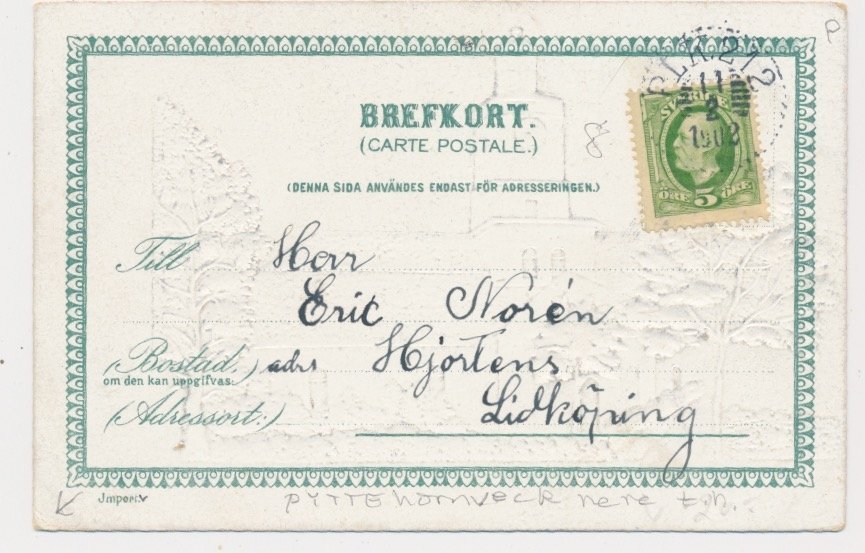 P
PLK 212
11
2
1902
SVERIGE
ÖRE 5 ÖRE
BREFKORT.
(CARTE POSTALE.)
8
(DENNA SIDA ANVÄNDES ENDAST FÖR ADRESSERINGEN.)
Till Herr
Eric Norén
(Bostad,) adrs Hjortens
om den kan uppgifvas.
(Adressort:) Lidköping
Import.
PYTTE hörnveck nere t.h.